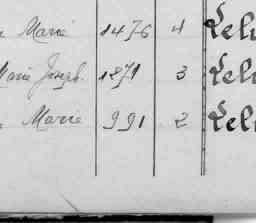 Marie 1476 4 Lelu
Marie Joseph 1871 3 Lelu
Marie 991 2 Lelu